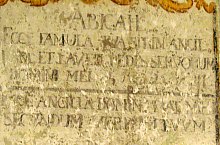 ABIGAIL
ECCE FAMULA TUA SIT IN ANCIL
LAM ET LAVET PEDES SERVORUM
DOMINI MEI
ECCE ANCILLA DOMINI FIAT MIHI
SECUNDUM VERBUM TUUM